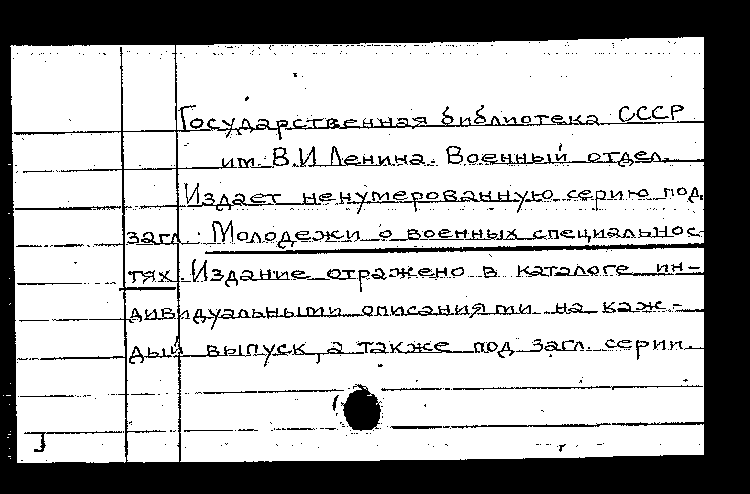 Государственная библиотека СССР
им. В.И Ленина. Военный отдел.
Издает ненумерованную серию под
загл.: Молодежи о военных специальнос-
тях. Издание отражено в каталоге ин-
дивидуальными описаниями на каж-
дый выпуск, а также под загл. серии.